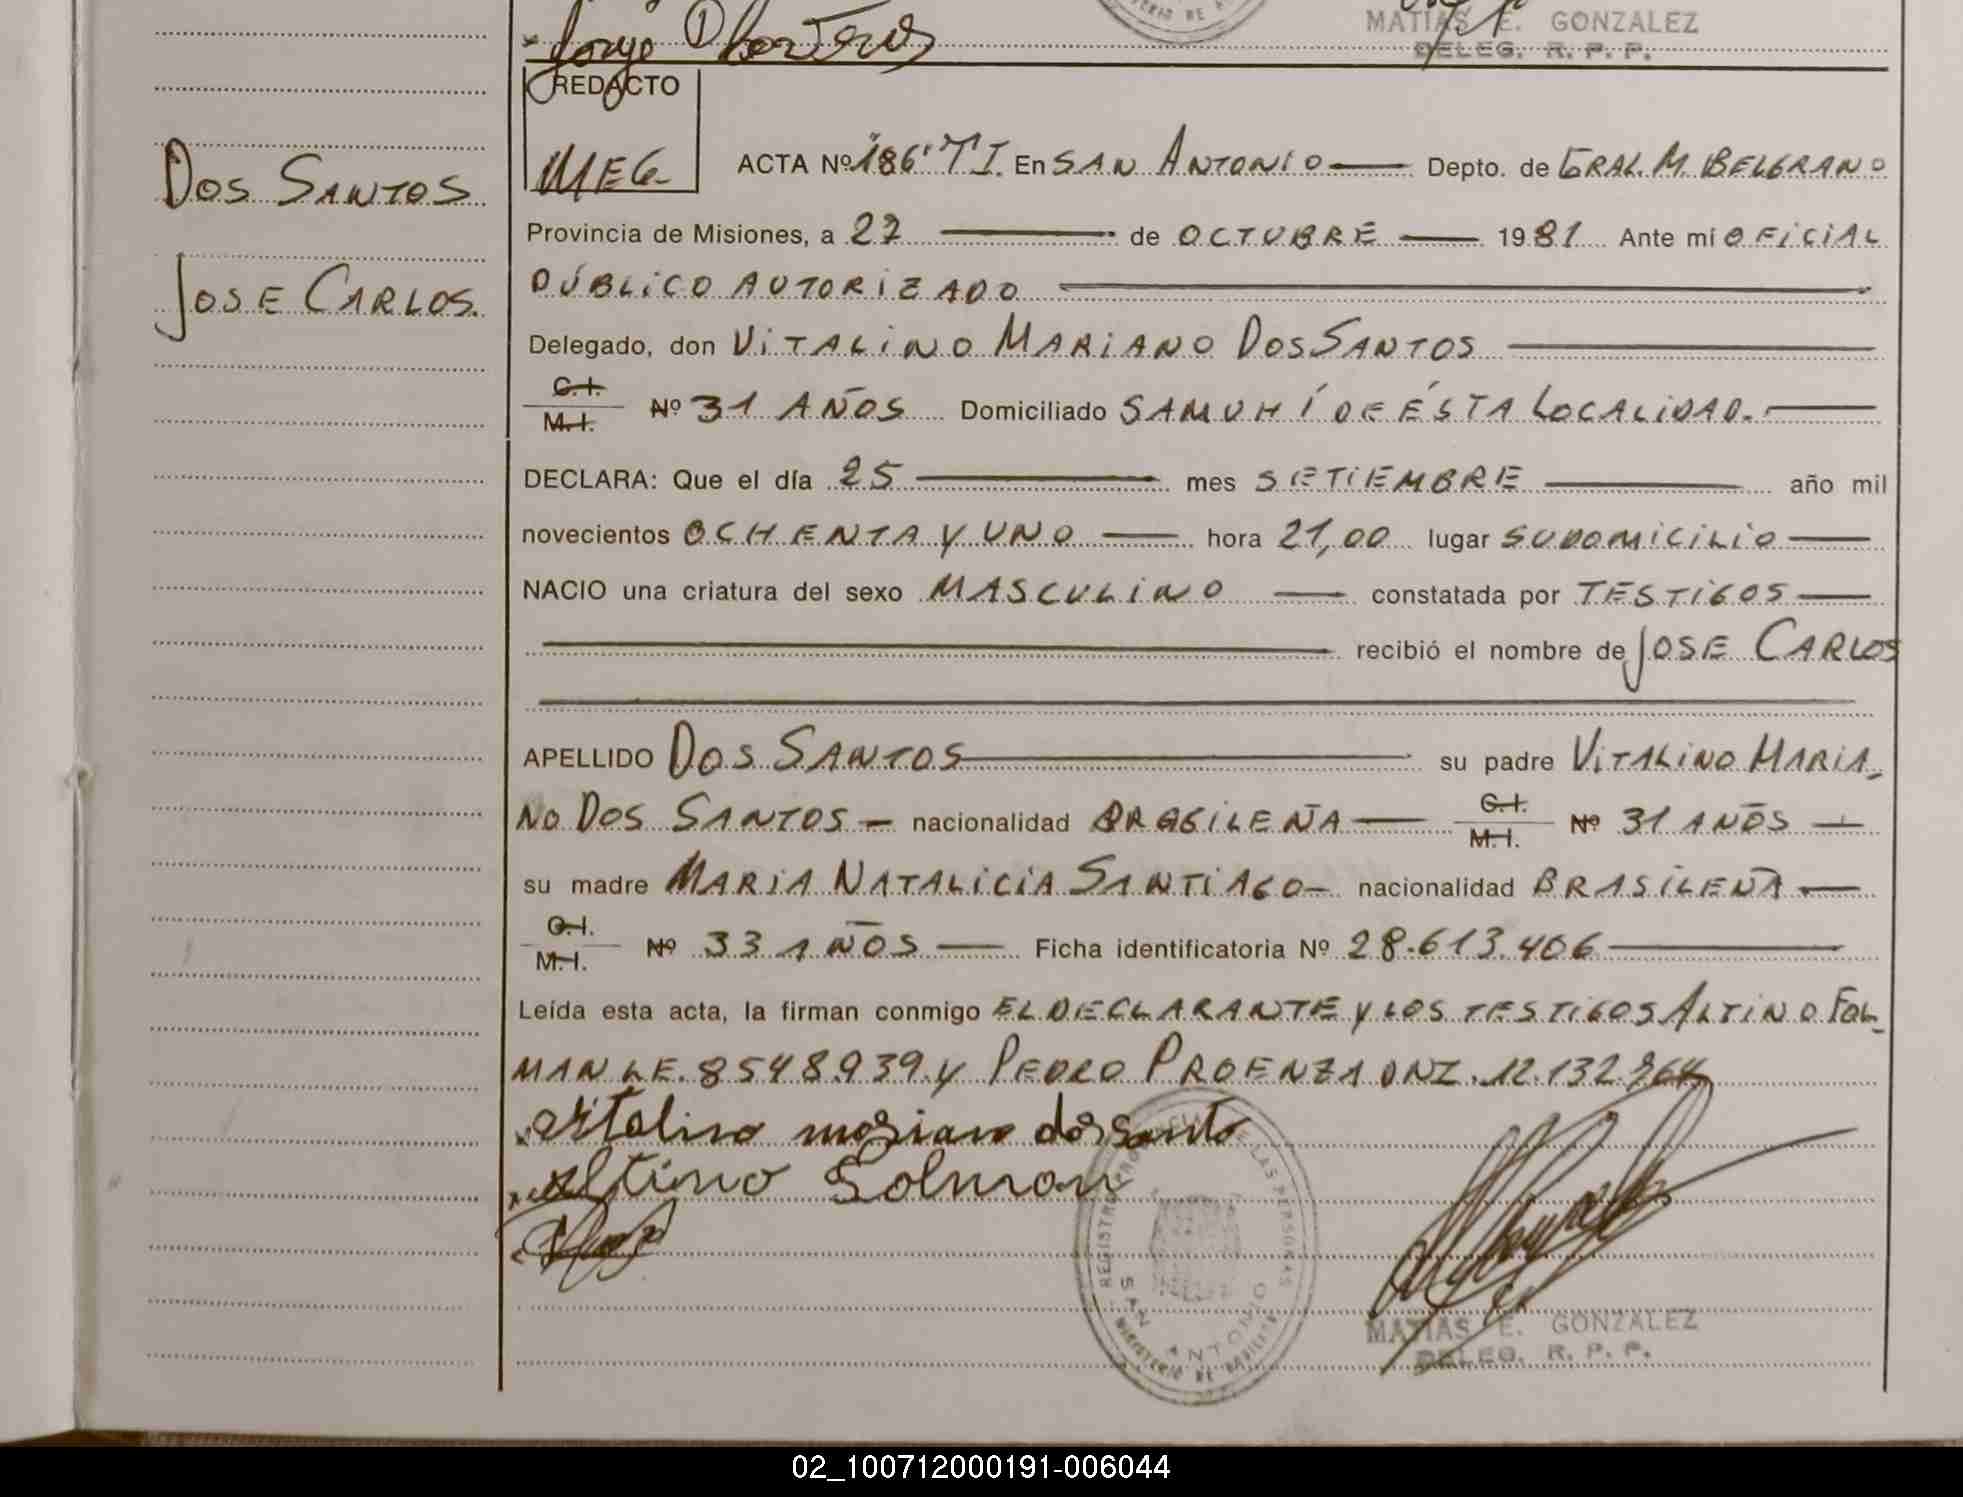 MATIAS E. GONZALEZ
DELEG. R. P. P.
REDACTO
MEG
DOS SANTOS
JOSE CARLOS.
ACTA Nº 186 "T I. En SAN ANTONIO Depto. de GRAL. M. BELGRANO
Provincia de Misiones, a 27 de OCTUBRE 1981 Ante mi OFICIAL
PÚBLICO AUTORIZADO
Delegado, don VITALINO MARIANO DOS SANTOS
C.I. M.I. Nº 31 AÑOS Domiciliado SAMUHÍ DE ÉSTA LOCALIDAD.
DECLARA: Que el día 25 mes SETIEMBRE año mil
novecientos OCHENTA Y UNO hora 21,00 lugar SU DOMICILIO
NACIO una criatura del sexo MASCULINO constatada por TESTIGOS
recibió el nombre de JOSE CARLOS
APELLIDO DOS SANTOS su padre VITALINO MARIA-
NO DOS SANTOS nacionalidad BRASILEÑA C.I. M.I. Nº 31 AÑOS
su madre MARIA NATALICIA SANTIAGO nacionalidad BRASILEÑA
C.I. M.I. Nº 33 AÑOS Ficha identificatoria Nº 28.613.406
Leída esta acta, la firman conmigo EL DECLARANTE Y LOS TESTIGOS ALTINO FOL-
MAN LE. 8548.939. Y PEDRO PROENZA DNI. 12.132.964
Vitalino mariano dos santo
Altino Folman
REGISTRO PROVINCIAL DE LAS PERSONAS
SAN ANTONIO
MATIAS E. GONZALEZ
DELEG. R. P. P.
02_100712000191-006044